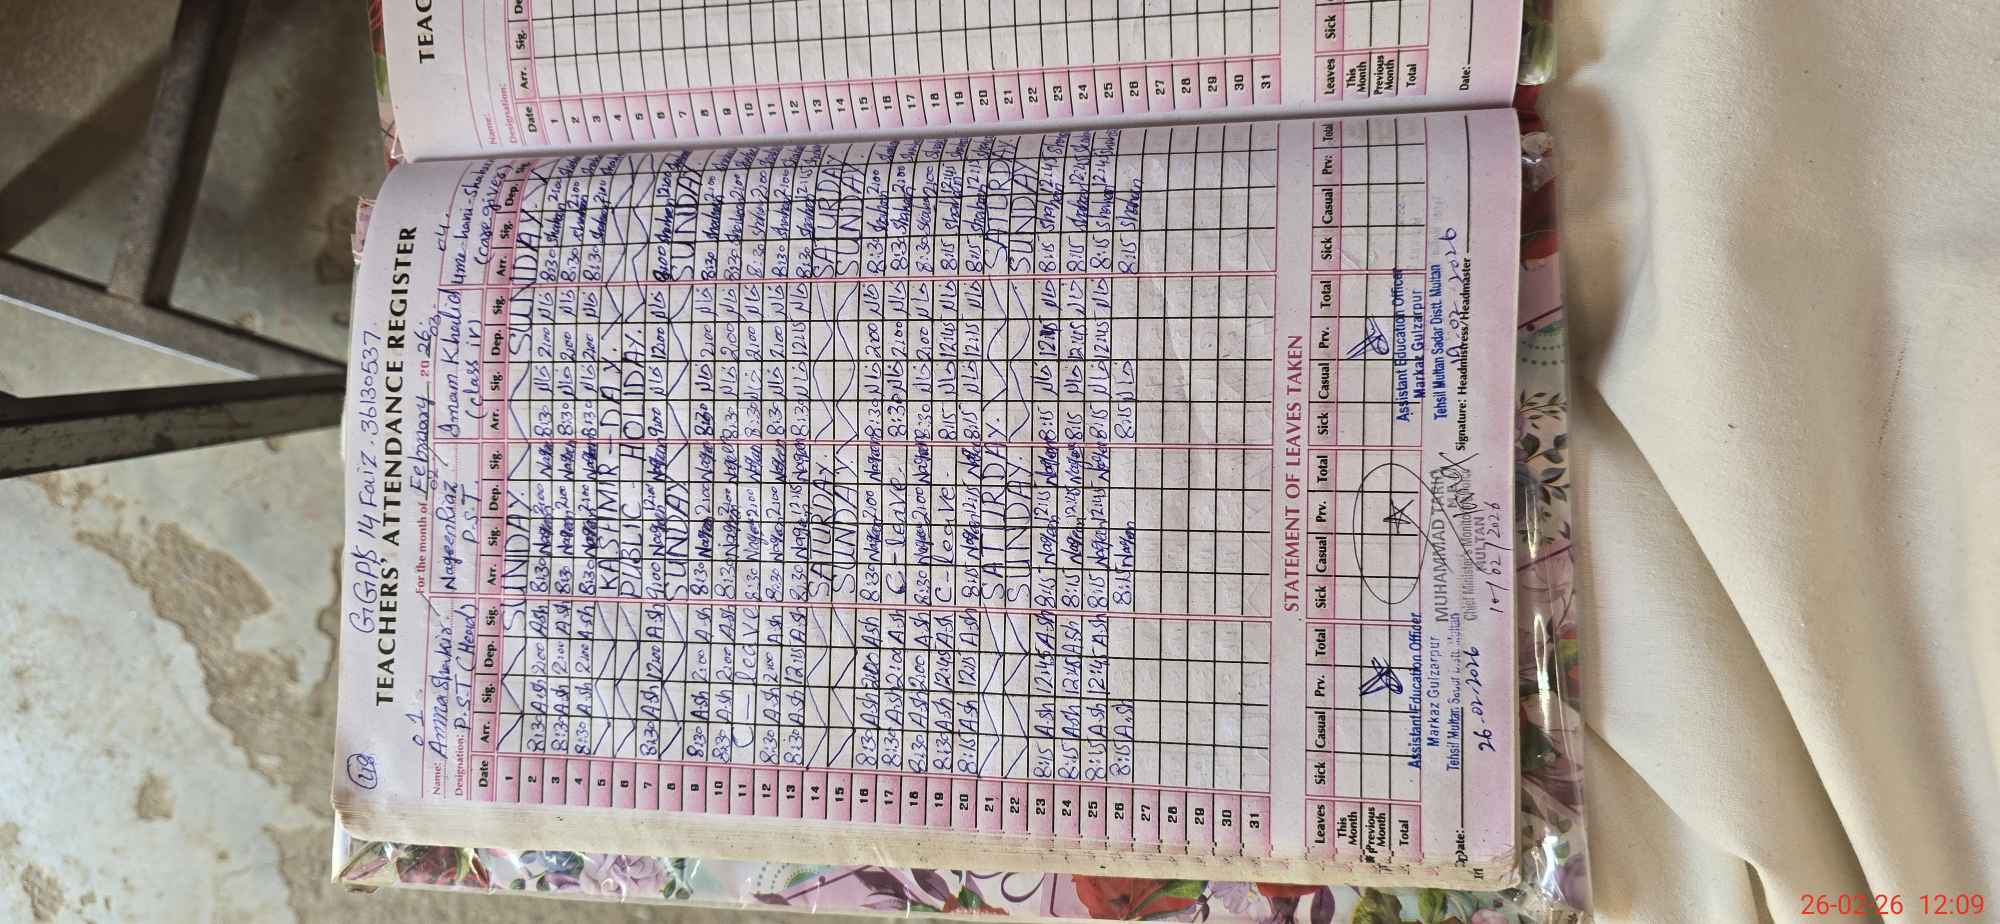 48
GGPS 14 Faiz. 36130537.
TEACHERS' ATTENDANCE REGISTER
For the month of February 2026.
01. 02 03. 04.
Name: Amna Shakir. Nageen Riaz Imam Khalid ume-hani-
Designation: P.S.T (Head) P.S.T. (class iv) (care giver)
Date Arr. Sig. Dep. Sig. Arr. Sig. Dep. Sig. Arr. Sig. Dep. Sig. Arr. Sig. Dep.
1 SUNDAY. SUNDAY.
2 8:30 Ash 2:00 Ash 8:30 Nageen 2:00 Nageen 8:30 2:00 8:30 2:00
3 8:30 Ash 2:00 Ash 8:30 Nageen 2:00 Nageen 8:30 2:00 8:30 2:00
4 8:30 Ash 2:00 Ash 8:30 Nageen 2:00 Nageen 8:30 2:00 8:30 2:00
5 KASHMIR-DAY.
6 PUBLIC HOLIDAY.
7 8:30 Ash 12:00 Ash 9:00 Nageen 12:00 Nageen 9:00 12:00 9:00 12:00
8 SUNDAY SUNDAY
9 8:30 Ash 2:00 Ash 8:30 Nageen 2:00 Nageen 8:30 2:00 8:30 2:00
10 8:30 2:00 Ash 8:30 Nageen 2:00 Nageen 8:30 2:00 8:30 2:00
11 C — leave 8:30 Nageen 2:00 Nageen 8:30 2:00 8:30 2:00
12 8:30 Ash 2:00 Ash 8:30 Nageen 2:00 Nageen 8:30 2:00 8:30 2:00
13 8:30 Ash 12:15 Ash 8:30 Nageen 12:15 Nageen 8:30 12:15 8:30 12:15
14 SATURDAY. SATURDAY
15 SUNDAY SUNDAY
16 8:30 Ash 2:00 Ash 8:30 Nageen 2:00 Nageen 8:30 2:00 8:30 2:00
17 8:30 Ash 2:00 Ash C - leave. 8:30 2:00 8:30 2:00
18 8:30 Ash 2:00 Ash 8:30 Nageen 2:00 Nageen 8:30 2:00 8:30 2:00
19 8:30 Ash 12:45 Ash C - leave. 8:15 12:45 8:15 12:45
20 8:15 Ash 12:15 Ash 8:15 Nageen 12:15 8:15 12:15 8:15 12:15
21 SATURDAY. SATURDAY
22 SUNDAY. SUNDAY
23 8:15 Ash 12:45 Ash 8:15 Nageen 12:15 Nageen 8:15 12:45 8:15 12:45
24 8:15 Ash 12:45 Ash 8:15 Nageen 12:45 Nageen 8:15 12:45 8:15 12:45
25 8:15 Ash 12:45 Ash 8:15 Nageen 12:45 Nageen 8:15 12:45 8:15 12:45
26 8:15 Ash 8:15 Nageen 8:15 8:15
27
28
29
30
31
STATEMENT OF LEAVES TAKEN
Leaves Sick Casual Prv. Total Sick Casual Prv. Total Sick Casual Prv. Total Sick Casual Prv: Total
This Month
Previous Month
Total
Assistant Education Officer
Markaz Gulzarpur
Tehsil Multan
26-02-2026
MUHAMMAD TARIQ
Chief Minister's
MULTAN
17/02/2026
Assistant Education Officer
Markaz Gulzarpur
Tehsil Multan Sadar Distt. Multan
19-02-2026
Date: Signature: Headmistress/Headmaster
TEAC
Name:
Designation:
Date Arr. Sig.
1
2
3
4
5
6
7
8
9
10
11
12
13
14
15
16
17
18
19
20
21
22
23
24
25
26
27
28
29
30
31
Leaves Sick
This Month
Previous Month
Total
Date:
26-02-26 12:09